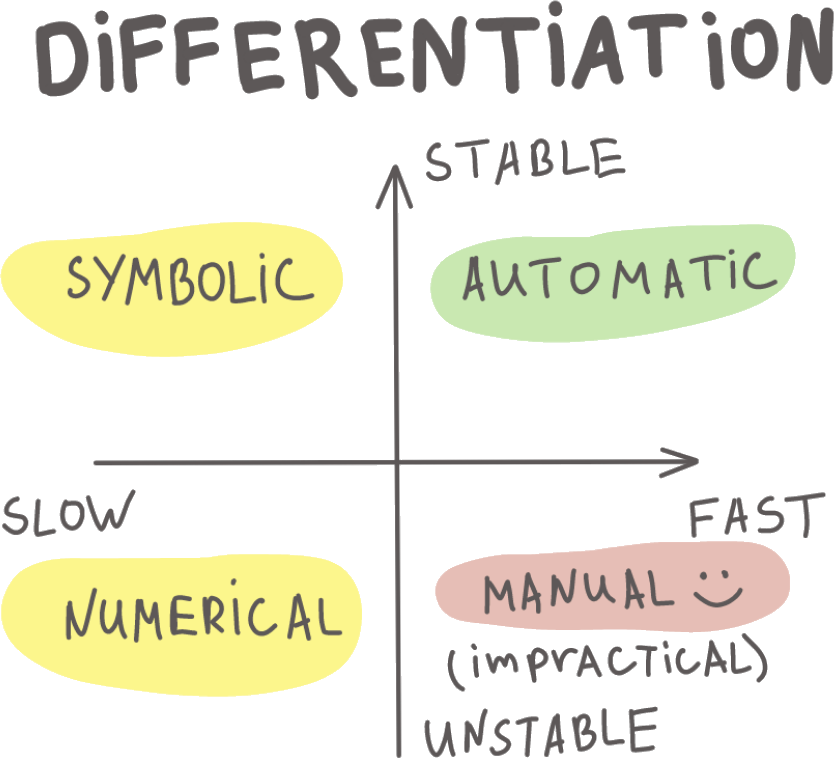 DiFFERENTiATiON
STABLE
SYMBOLiC
AUTOMATiC
SLOW
FAST
NUMERiCAL
MANUAL
(imprACTiCAL)
UNSTABLE